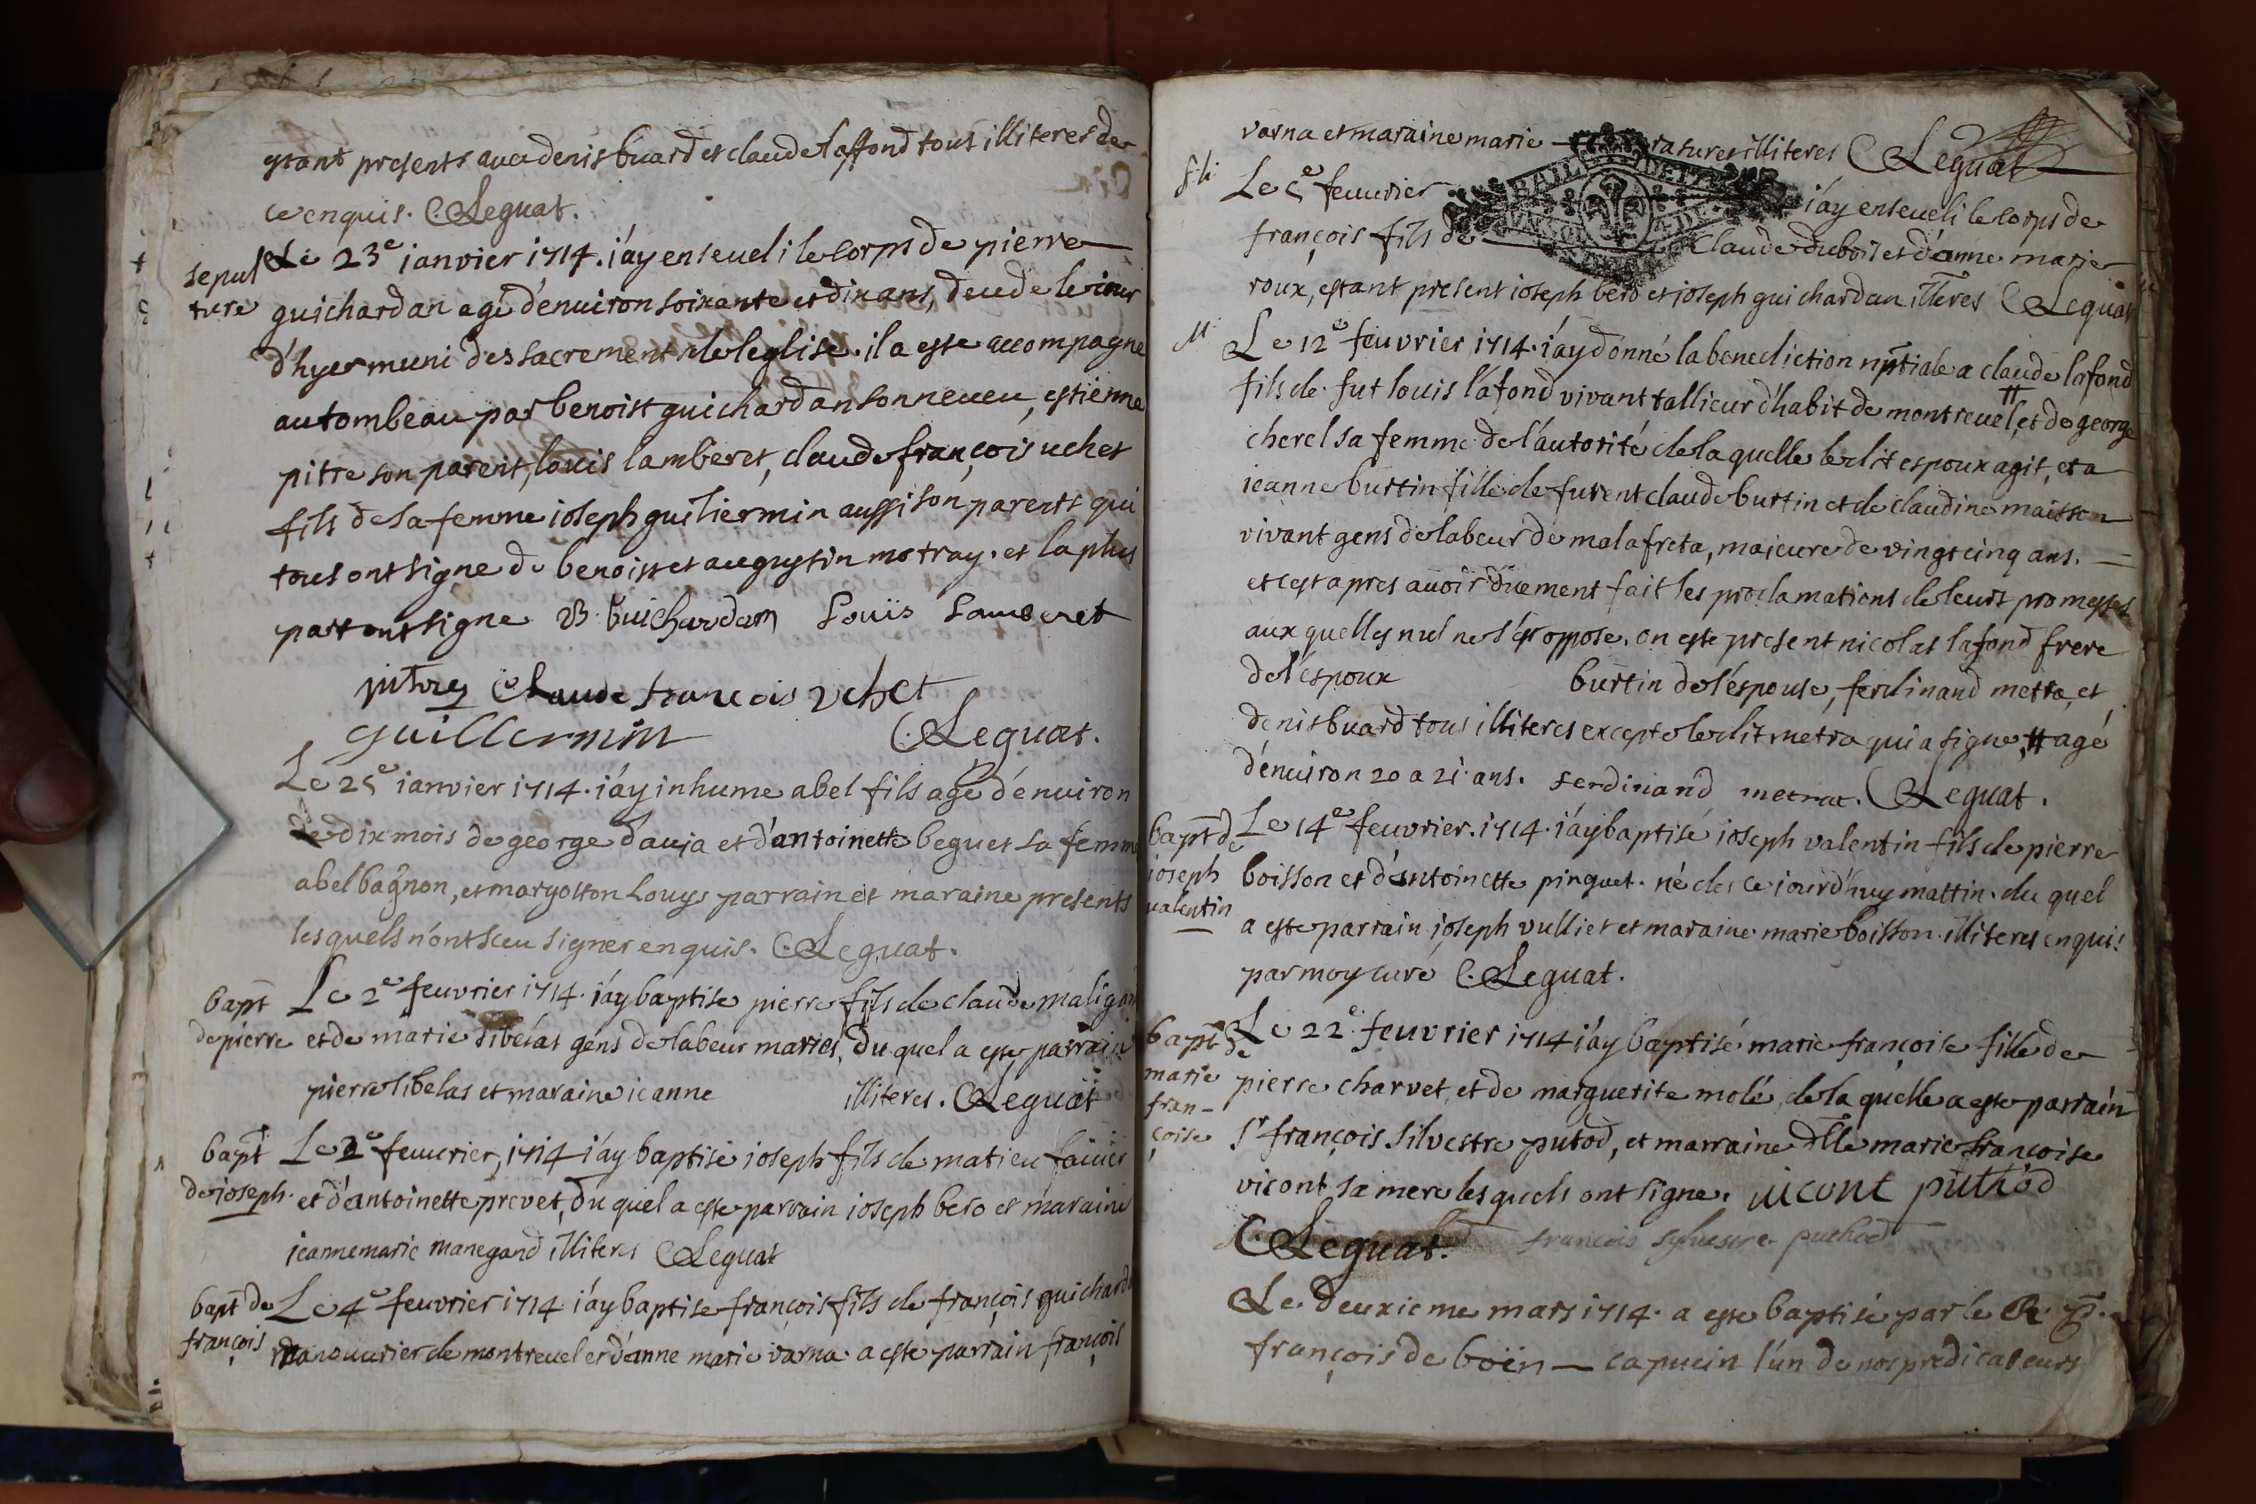 estant presents avec denis buard et claude laffond tous illiteres de
ce enquis. C. Leguat.
sepul
ture
Le 23e ianvier 1714. i'ay enseueli le corps de pierre
guichardan agé d'enuiron soixante et dix ans, decede le iour
d'hyer muni des sacrements de l'eglise. il a este accompagne
au tombeau par benoist guichardan son neueu, estienne
pitre son parent, louis lamberet, claude françois uchet
fils de sa femme ioseph guilliermin aussi son parents qui
tous ont signe de benoist et augustin motray. et la plus
part ont signe B. Guichardan Louis Lamberet
pitre Claude francois Vchet
guillermin C. Leguat.
Le 25e ianvier 1714. i'ay inhume abel fils agé d'enuiron
de dix mois de george dauja et d'antoinette beguet sa femme
abel bagnon, et margotton Louys parrain et maraine presents
lesquels n'ont sceu signer enquis. C. Leguat.
bapt
de pierre
Le 2e feuvrier 1714. i'ay baptise pierre fils de claude
et de marie sibelas gens de labeur mariés, du quel a este parrain
pierre sibelas et maraine ieanne illiteres. C. Leguat
bapt
de ioseph.
Le 2e feuurier, 1714 i'ay baptisé ioseph fils de matieu
et d'antoinette prevet, du quel a este parrain ioseph bero et maraine
jeanne marie manegand illiteres C. Leguat
bapt de
françois
Le 4e feuvrier 1714 i'ay baptise françois fils de françois
manouurier de montreuel et d'anne marie varna. a este parrain françois
varna et maraine marie — illiteres C. Leguat
Le 5e feuurier i'ay enseueli le corps de
françois fils de claude dubois et d'anne marie
roux, estant present ioseph bero et ioseph guichardan illres C. Leguat
M.
Le 12e feuvrier 1714. i'ay donné la benediction nptiale a claude lafond
fils de fut louis lafond vivant tallieur d'habit de montreuel, # et de george
cherel sa femme de l'autorité de la quelle ledit espoux agit, et a
ieanne burtin fille de furent claude burtin et de claudine maisson
vivant gens de labeur de malafreta, maieure de vingt cinq ans.
et c'est apres auoir duement fait les proclamations de leurs promesses
aux quelles nul ne s'est oppose. on este present nicolas lafond frere
de l'espoux burtin de l'espouse, ferdinand metra, et
denis buard tous illiteres excepte ledit metra qui a signe, # agé
d'enuiron 20 a 21 ans. ferdinand metrat. C. Leguat.
bapt de
ioseph
valentin
Le 14e feuvrier. 1714. i'ay baptisé ioseph valentin fils de pierre
boisson et d'antoinette pinguet. né des ce iourd'huy mattin. du quel
a este parrain ioseph vulliet et maraine marie boisson illiteres enquis
par moy curé C. Leguat.
bapt de
marie
fran-
çoise
Le 22e feuvrier 1714 i'ay baptisé marie françoise fille de
pierre charvet, et de marguerite molé, de la quelle a este parrain
Sr françois silvestre putod, et marraine dlle marie françoise
vicont sa mere lesquels ont signe. vicont puthod
C. Leguat. francois sylvestre puthod
Le deuxieme mars 1714. a este baptisé par le R. P.
françois de boën — capucin l'un de nos predicateurs